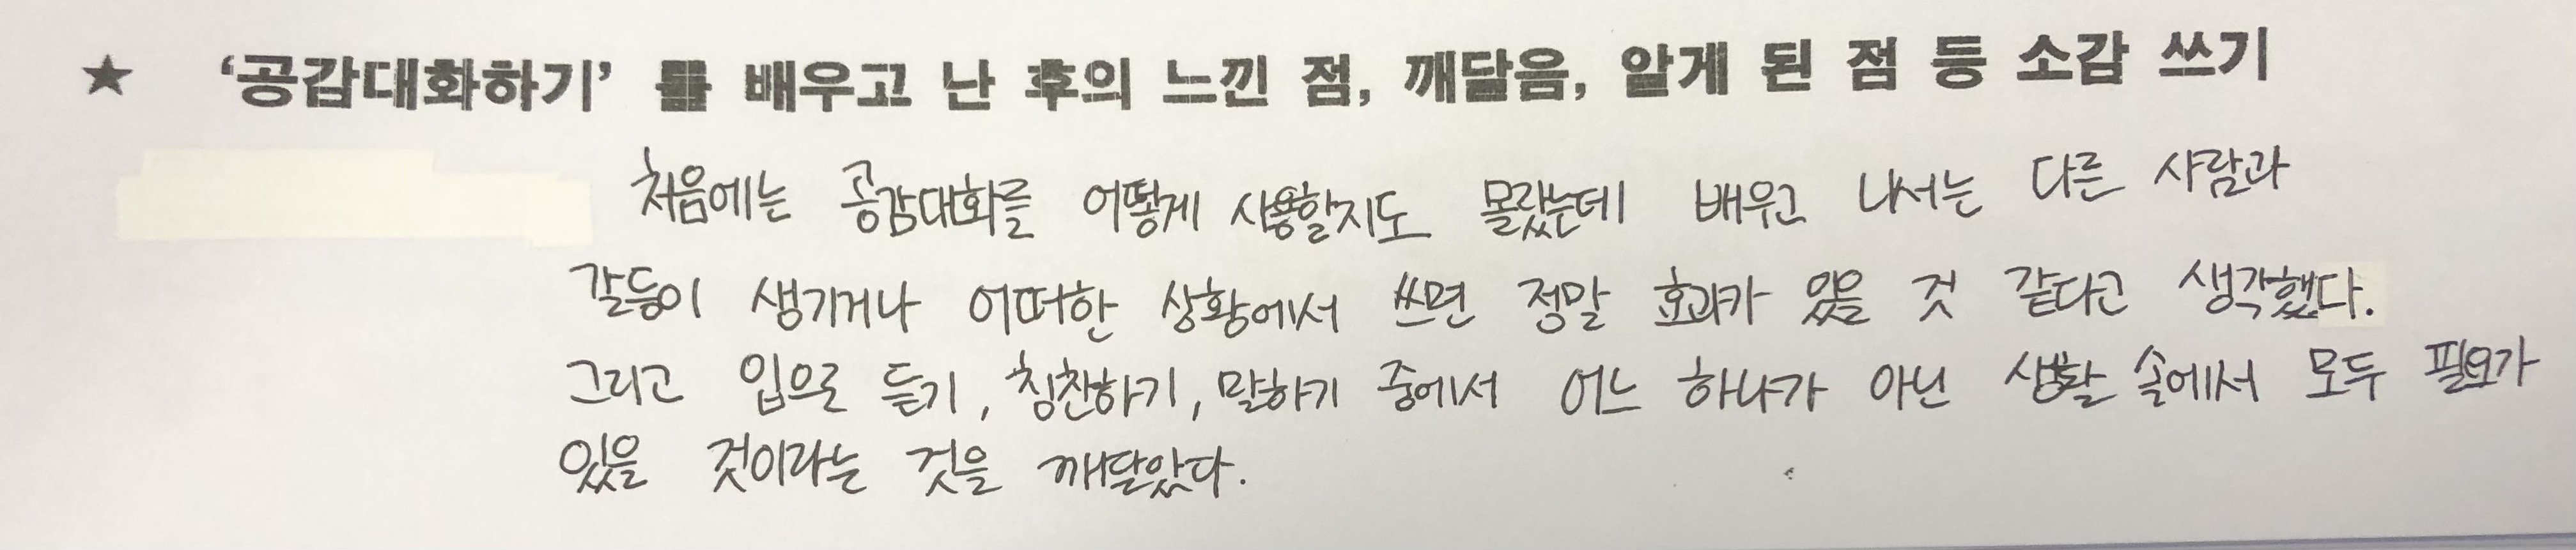 ★ '공감대화하기' 를 배우고 난 후의 느낀 점, 깨달음, 알게 된 점 등 소감 쓰기
처음에는 공감대화를 어떻게 사용할지도 몰랐는데 배우고 나서는 다른 사람과
갈등이 생기거나 어떠한 상황에서 쓰면 정말 효과가 있을 것 같다고 생각했다.
그리고 입으로 듣기, 칭찬하기, 말하기 중에서 어느 하나가 아닌 생활 속에서 모두 필요가
있을 것이라는 것을 깨달았다.